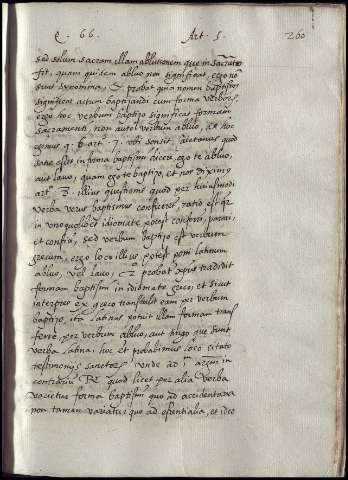 Q. 66. Art. 5. 260
sed solum sacram illam ablutionem que in sacrāto
fit, quam quidem abluo non significat, ergo nō
sunt synonima, et probat quia nomen baptismi
significat actum baptizandi cum forma verbor̄,
ergo hoc verbum baptizo significat formam
sacramenti, non autem verbum abluo, at hoc
art. 7. ubi sensit, Caietanus quod
satis esset in forma baptismi dicere, ego te abluo,
aut lavo, quam ego te baptizo, et nos diximus
art. 3. illius questionis quod per huiusmodi
verba verus baptismus conficeret, ratio est q̄a
in unoquoque idiomate potest conferri,
et confici, sed verbum baptizo est verbum
grecum, ergo loco illius potest poni latinum
abluo, vel lavo, et probat xp̄us tradidit
formam baptismi in idiomate greco, et sicut
interpres ex greco transtulit eam per verbum
baptizo, ita latinus potuit illam formam trans
ferre, per verbum abluo, aut tingo, que sunt
verba latina, hoc et probabimus loco citato
testimonijs sanctor̄ unde ad 1 argm in
contrarium R. quod licet per alia verba
varietur forma baptismi quo ad accidentaria
non tamen variatur quo ad essentialia, et ideo